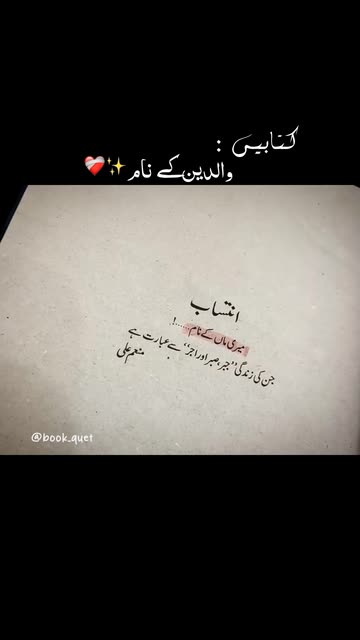 کتابیں :
والدین کے نام ✨❤️‍🩹
انتساب
میری ماں کے نام.....!
جن کی زندگی ”جبر، صبر اور اجر“ سے عبارت ہے
منعم علی
@book_quet